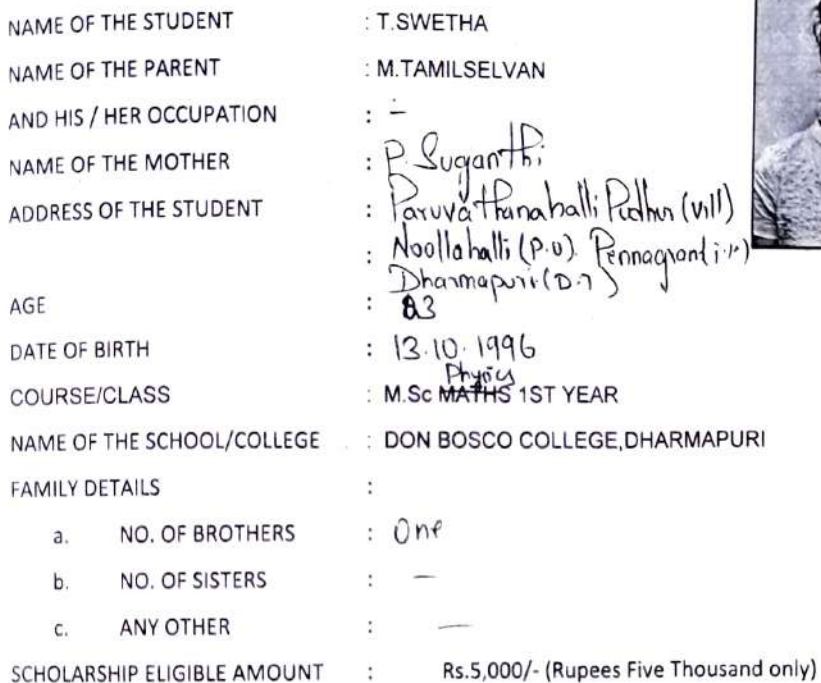 NAME OF THE STUDENT : T.SWETHA
NAME OF THE PARENT : M.TAMILSELVAN
AND HIS / HER OCCUPATION : -
NAME OF THE MOTHER : P. Suganthi
ADDRESS OF THE STUDENT : Paruvathanahalli Pudhur (vill)
: Noollahalli (P.O)
Dharmapuri (D.T)
AGE : 23
DATE OF BIRTH : 13.10.1996
Physics
COURSE/CLASS : M.Sc MATHS 1ST YEAR
NAME OF THE SCHOOL/COLLEGE : DON BOSCO COLLEGE,DHARMAPURI
FAMILY DETAILS :
a. NO. OF BROTHERS : One
b. NO. OF SISTERS : —
c. ANY OTHER : —
SCHOLARSHIP ELIGIBLE AMOUNT : Rs.5,000/- (Rupees Five Thousand only)